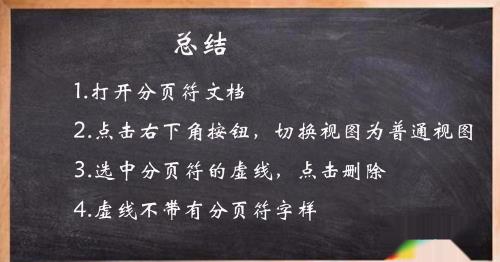 总结
1.打开分页符文档
2.点击右下角按钮，切换视图为普通视图
3.选中分页符的虚线，点击删除
4.虚线不带有分页符字样